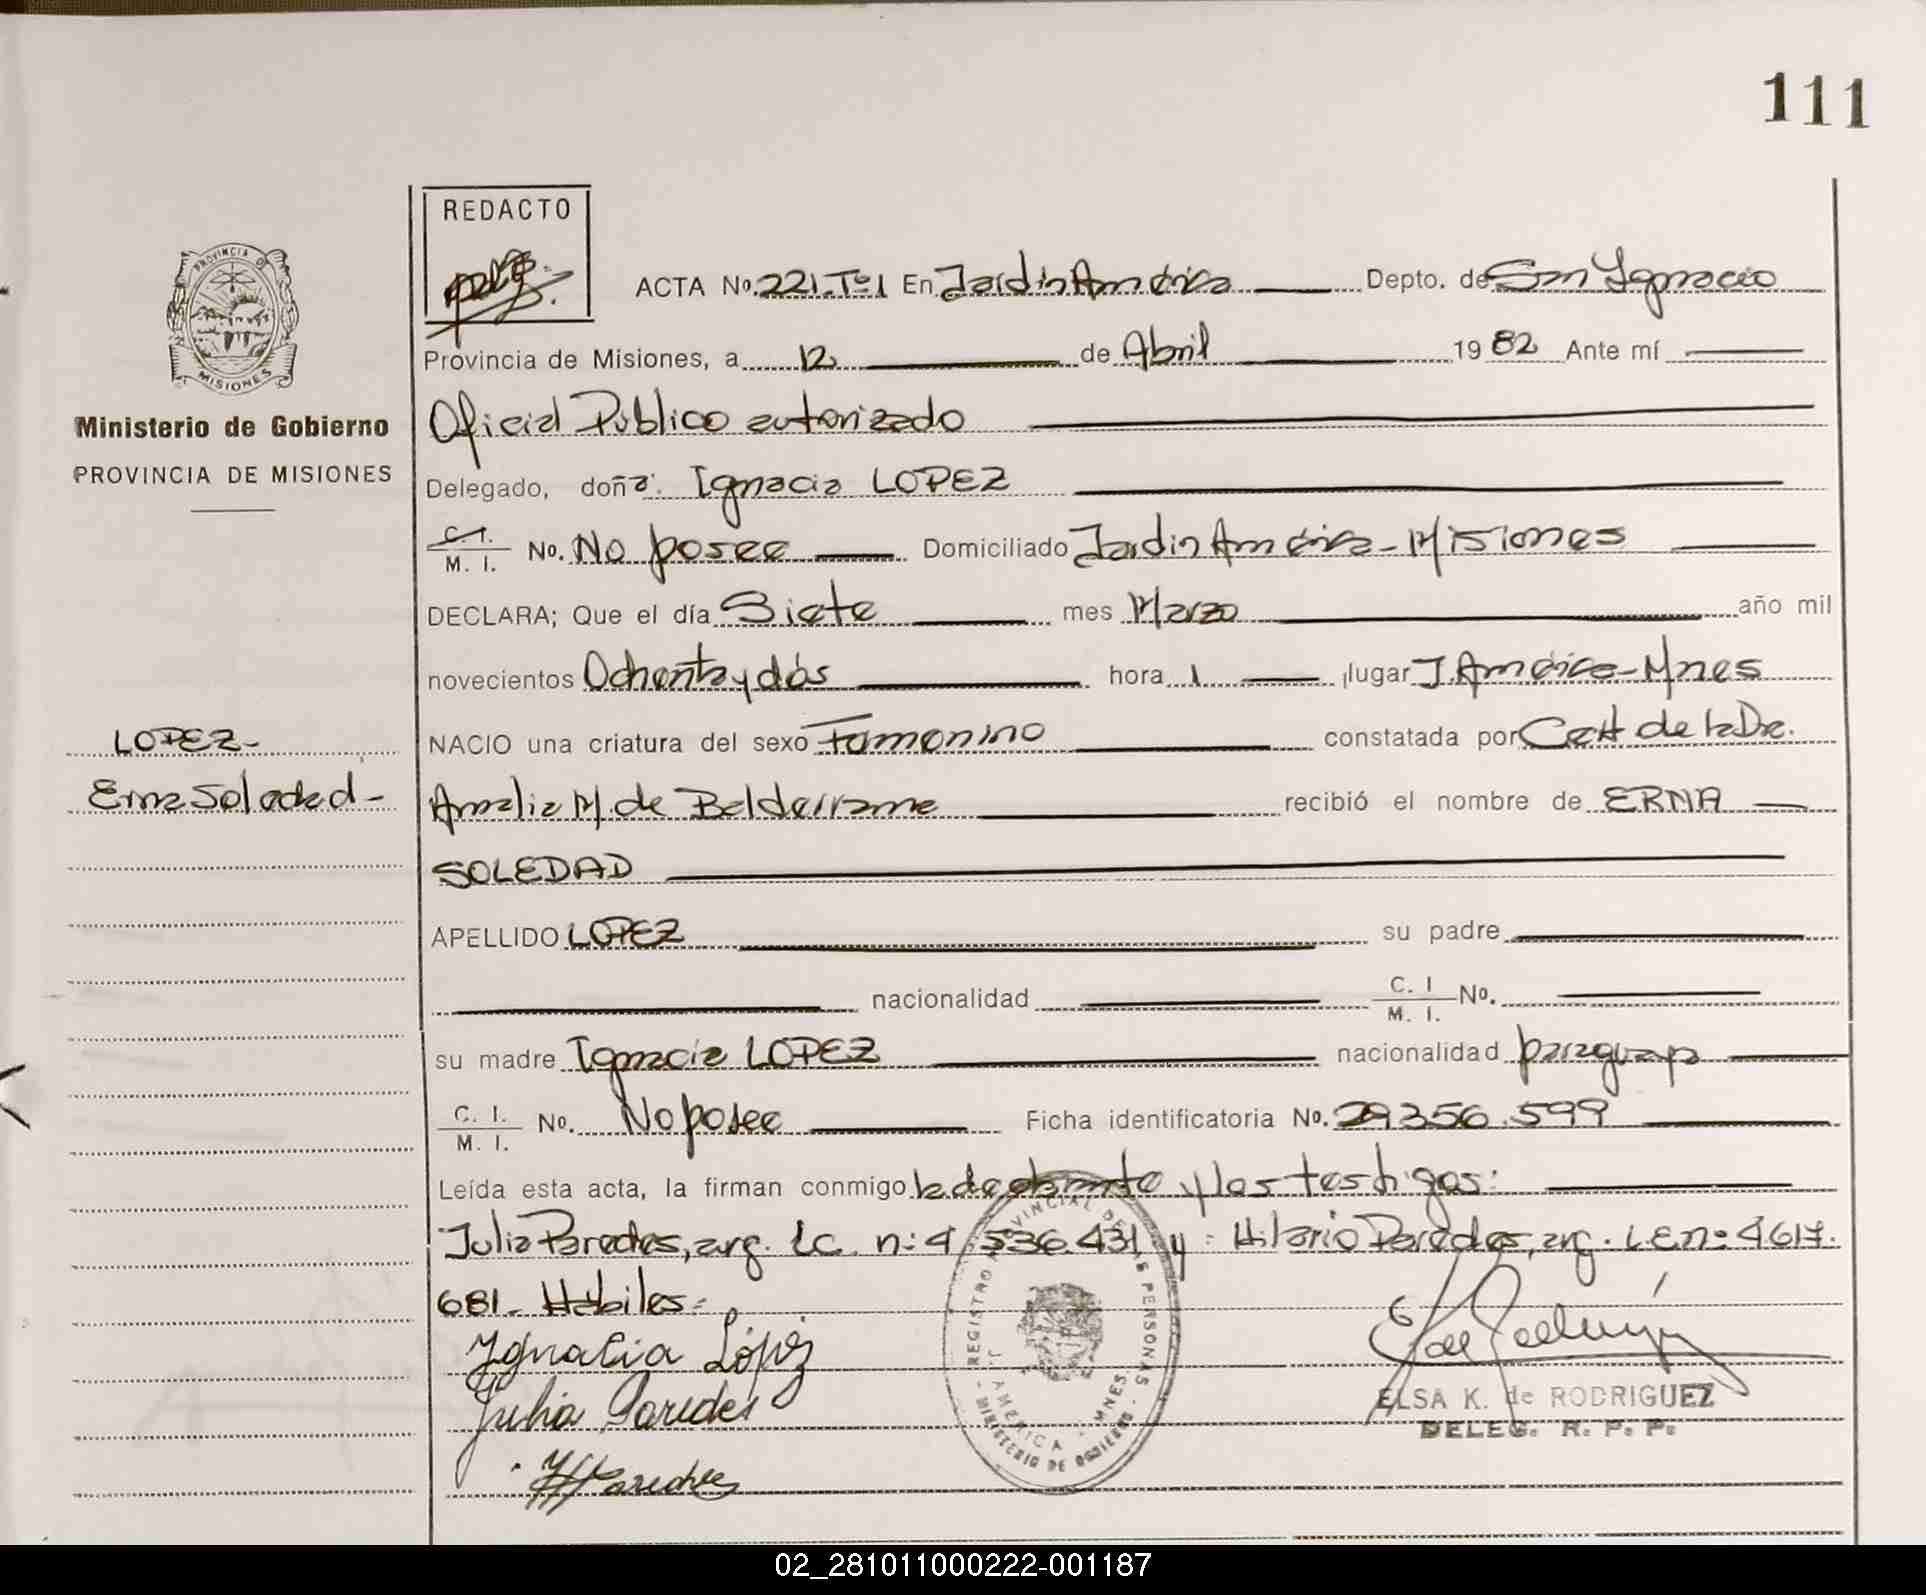 111
REDACTO
ACTA No. 221-Tº1 En Jardín América Depto. de San Ignacio
Provincia de Misiones, a 12 de Abril 1982 Ante mí
Oficial Público autorizado
Delegado, doña: Ignacia LOPEZ
C. I. / M. I. No. No posee Domiciliado Jardín América - Misiones
DECLARA; Que el día Siete mes Marzo año mil
novecientos Ochenta y dós hora 1 lugar J. América - Mnes
NACIO una criatura del sexo Femenino constatada por Cert de la Dra.
Amalia M. de Balderrama recibió el nombre de ERNA
SOLEDAD
APELLIDO LOPEZ su padre
nacionalidad C. I / M. I. No.
su madre Ignacia LOPEZ nacionalidad paraguaya
C. I. / M. I. No. No posee Ficha identificatoria No. 29.356.599
Leída esta acta, la firman conmigo la declarante y los testigos:
Julia Paredes, arg. Lc. n: 4.536.431 y: Hilario Paredes, arg. LE nº 4617.
681. Hábiles.
Ignacia López
Julia Paredes
H Paredes
ELSA K. de RODRIGUEZ
DELEG. R. P. P.
REGISTRO PROVINCIAL DE LAS PERSONAS
J. AMERICA - MNES.
MINISTERIO DE GOBIERNO
PROVINCIA DE
MISIONES
Ministerio de Gobierno
PROVINCIA DE MISIONES
LOPEZ-
Erna Soledad-
02_281011000222-001187